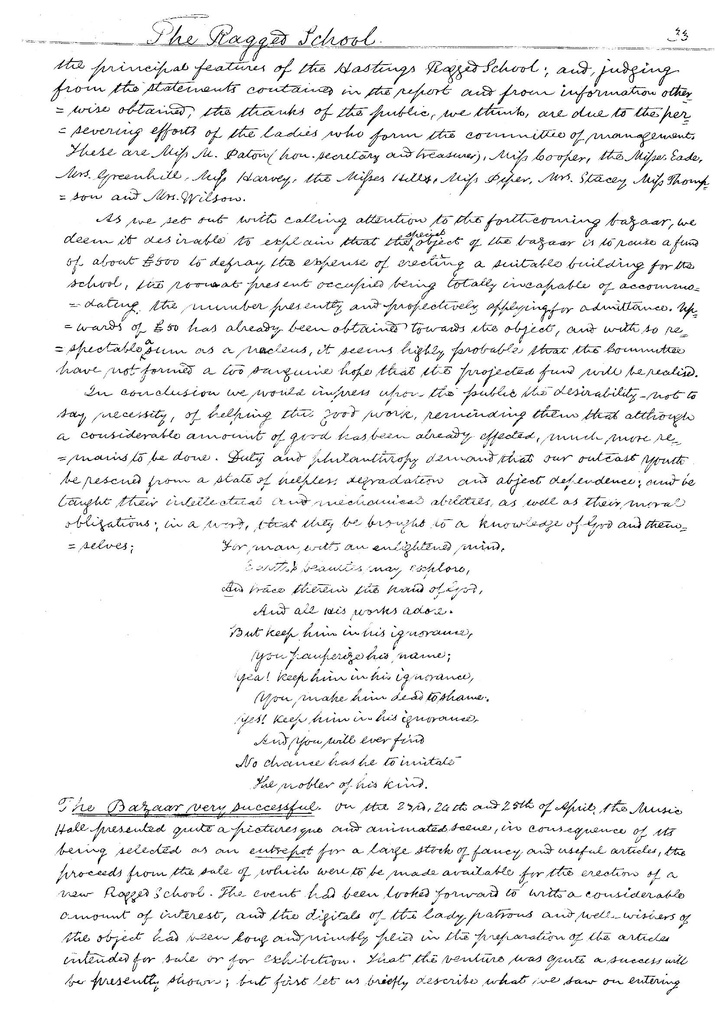 The Ragged School. 33
the principal features of the Hastings Ragged School; and, judging
from the statements contained in the report and from information other-
=wise obtained, the thanks of the public, we think, are due to the per=
=severing efforts of the ladies who form the committee of management.
These are Miss M. Paton (hon. secretary and treasurer), Miss Cooper, the Misses Eade,
Mrs. Greenhill, Miss Harvey, the Misses Hills, Miss Piper, Mrs. Stacey Miss Thomp=
=son and Mrs. Wilson.
As we set out with calling attention to the forthcoming bazaar, we
deem it desirable to explain that the special object of the bazaar is to raise a fund
of about £500 to defray the expense of erecting a suitable building for the
school, the room at present occupied being totally incapable of accommo=
=dating the number presently and propectively applying for admittance. Up=
=wards of £50 has already been obtained towards the object, and with so re=
=spectable a sum as a nucleus, it seems highly probable that the Committee
have not formed a too sanguine hope that the projected fund will be realised.
In conclusion we would impress upon the public the desirability - not to
say, necessity, of helping the good work, reminding them that although
a considerable amount of good has been already effected, much more re=
=mains to be done. Duty and philanthropy demand that our outcast youth
be rescued from a state of helpless degradation and abject dependence; and be
taught their intellectual and mechanical abilities, as well as their moral
obligations; in a word, that they be brought to a knowledge of God and them=
=selves; For, man, with an enlightened mind,
Earth's beauties may explore,
And trace therein the hand of God,
And all His works adore.
But keep him in his ignorance,
You pauperize his name;
Yea! keep him in his ignorance,
You make him dead to shame.
Yes! keep him in his ignorance,
And you will ever find
No chance has he to imitate
The nobler of his kind.
The Bazaar very successful. On the 23rd, 24th and 25th of April, the Music
Hall presented quite a picturesque and animated scene, in consequence of its
being selected as an entrepot for a large stock of fancy and useful articles, the
proceeds from the sale of which were to be made available for the erection of a
new Ragged School. The event had been looked forward to with a considerable
amount of interest, and the digitals of the lady patrons and well-wishers of
the object had been long and nimbly plied in the preparation of the articles
intended for sale or for exhibition. That the venture was quite a success will
be presently shown; but first let us briefly describe what we saw on entering